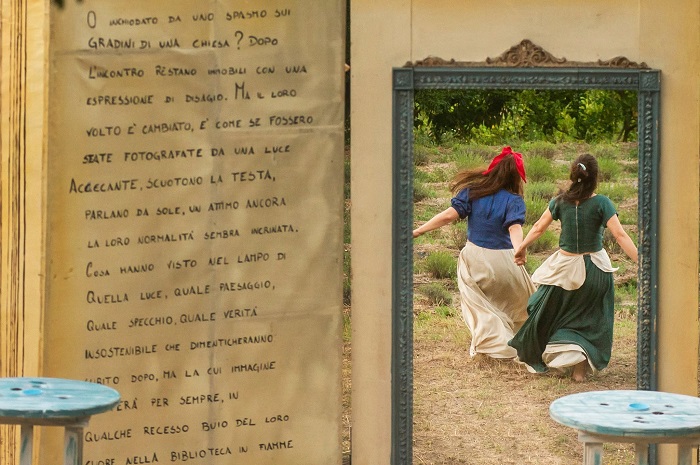 O INCHIODATO DA UNO SPASMO SUI
GRADINI DI UNA CHIESA? DOPO
L'INCONTRO RESTANO IMMOBILI CON UNA
ESPRESSIONE DI DISAGIO. MA IL LORO
VOLTO E' CAMBIATO, E' COME SE FOSSERO
STATE FOTOGRAFATE DA UNA LUCE
ACCECANTE, SCUOTONO LA TESTA,
PARLANO DA SOLE, UN ATTIMO ANCORA
LA LORO NORMALITÀ SEMBRA INCRINATA.
COSA HANNO VISTO NEL LAMPO DI
QUELLA LUCE, QUALE PAESAGGIO,
QUALE SPECCHIO, QUALE VERITÀ
INSOSTENIBILE CHE DIMENTICHERANNO
SUBITO DOPO, MA LA CUI IMMAGINE
PER SEMPRE, IN
QUALCHE RECESSO BUIO DEL LORO
CUORE NELLA BIBLIOTECA IN FIAMME